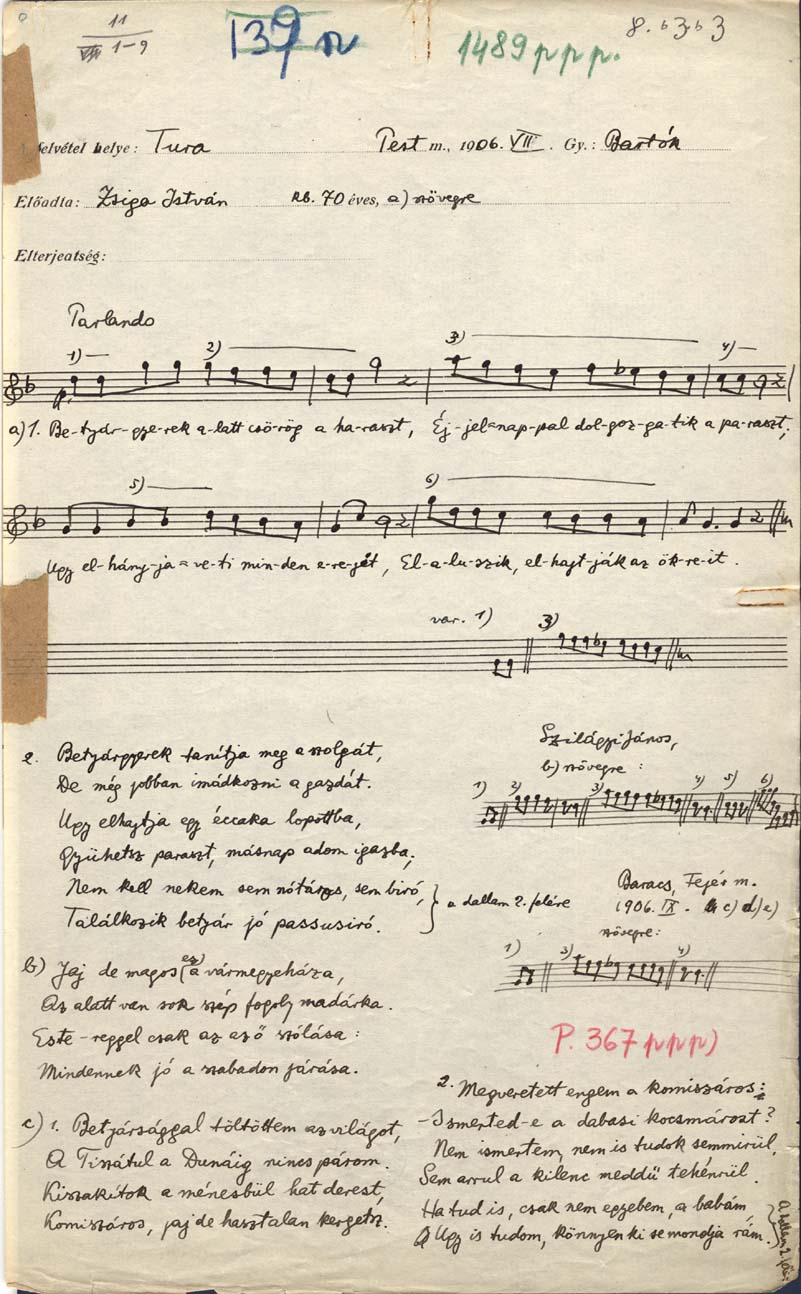 11
1-9
139 n
1489 ppp.
8. b3b3
felvétel helye: Tura Pest m., 1906. VII. Gy.: Bartók
Előadta: Zsiga István kb. 70 éves, a) szövegre
Elterjedtség:
Parlando
1) 2) 3) 4)
a) 1. Be-tyár-gye-rek a-latt csö-rög a ha-raszt, Éj-jel=nap-pal dol-goz-ga-tik a pa-raszt;
5) 6)
Ugy el-hány-ja=ve-ti min-den e-re-jét, El-a-lu-szik, el-hajt-ják az ök-re-it.
var. 1) 3)
2. Betyárgyerek tanítja meg a szolgát,
De még jobban imádkozni a gazdát.
Ugy elhajtja egy éccaka lopottba,
Gyühetsz paraszt, másnap adom igazba;
Nem kell nekem sem nótárzs, sem biró,
Találkozik betyár jó passusiró.
a dallam 2. felére
Szilágyi János,
b) szövegre:
1) 2) 3) 4) 5) 6)
Baracs, Fejér m.
1906. IX. c) d) e)
szövegre:
1) 3) 4)
P. 367 ppp)
b) Jaj de magos (ez) a vármegyeháza,
Az alatt van sok szép fogoly madárka.
Este-reggel csak az a ző szólása:
Mindennek jó a szabadon járása.
c) 1. Betyársággal töltöttem az világot,
A Tiszátul a Dunáig nincs párom.
Kiszakítok a ménesbül hat derest,
Komiszáros, jaj de hasztalan kergetsz.
2. Megveretett engem a komiszáros:
-Ismerted-e a dabasi kocsmárost?
Nem ismertem, nem is tudok semmirül,
Sem arrul a kilenc meddü tehénrül.
Ha tud is, csak nem egyebem, a babám,
Ugy is tudom, könnyen ki se mondja rám.
A dallam 2. felére